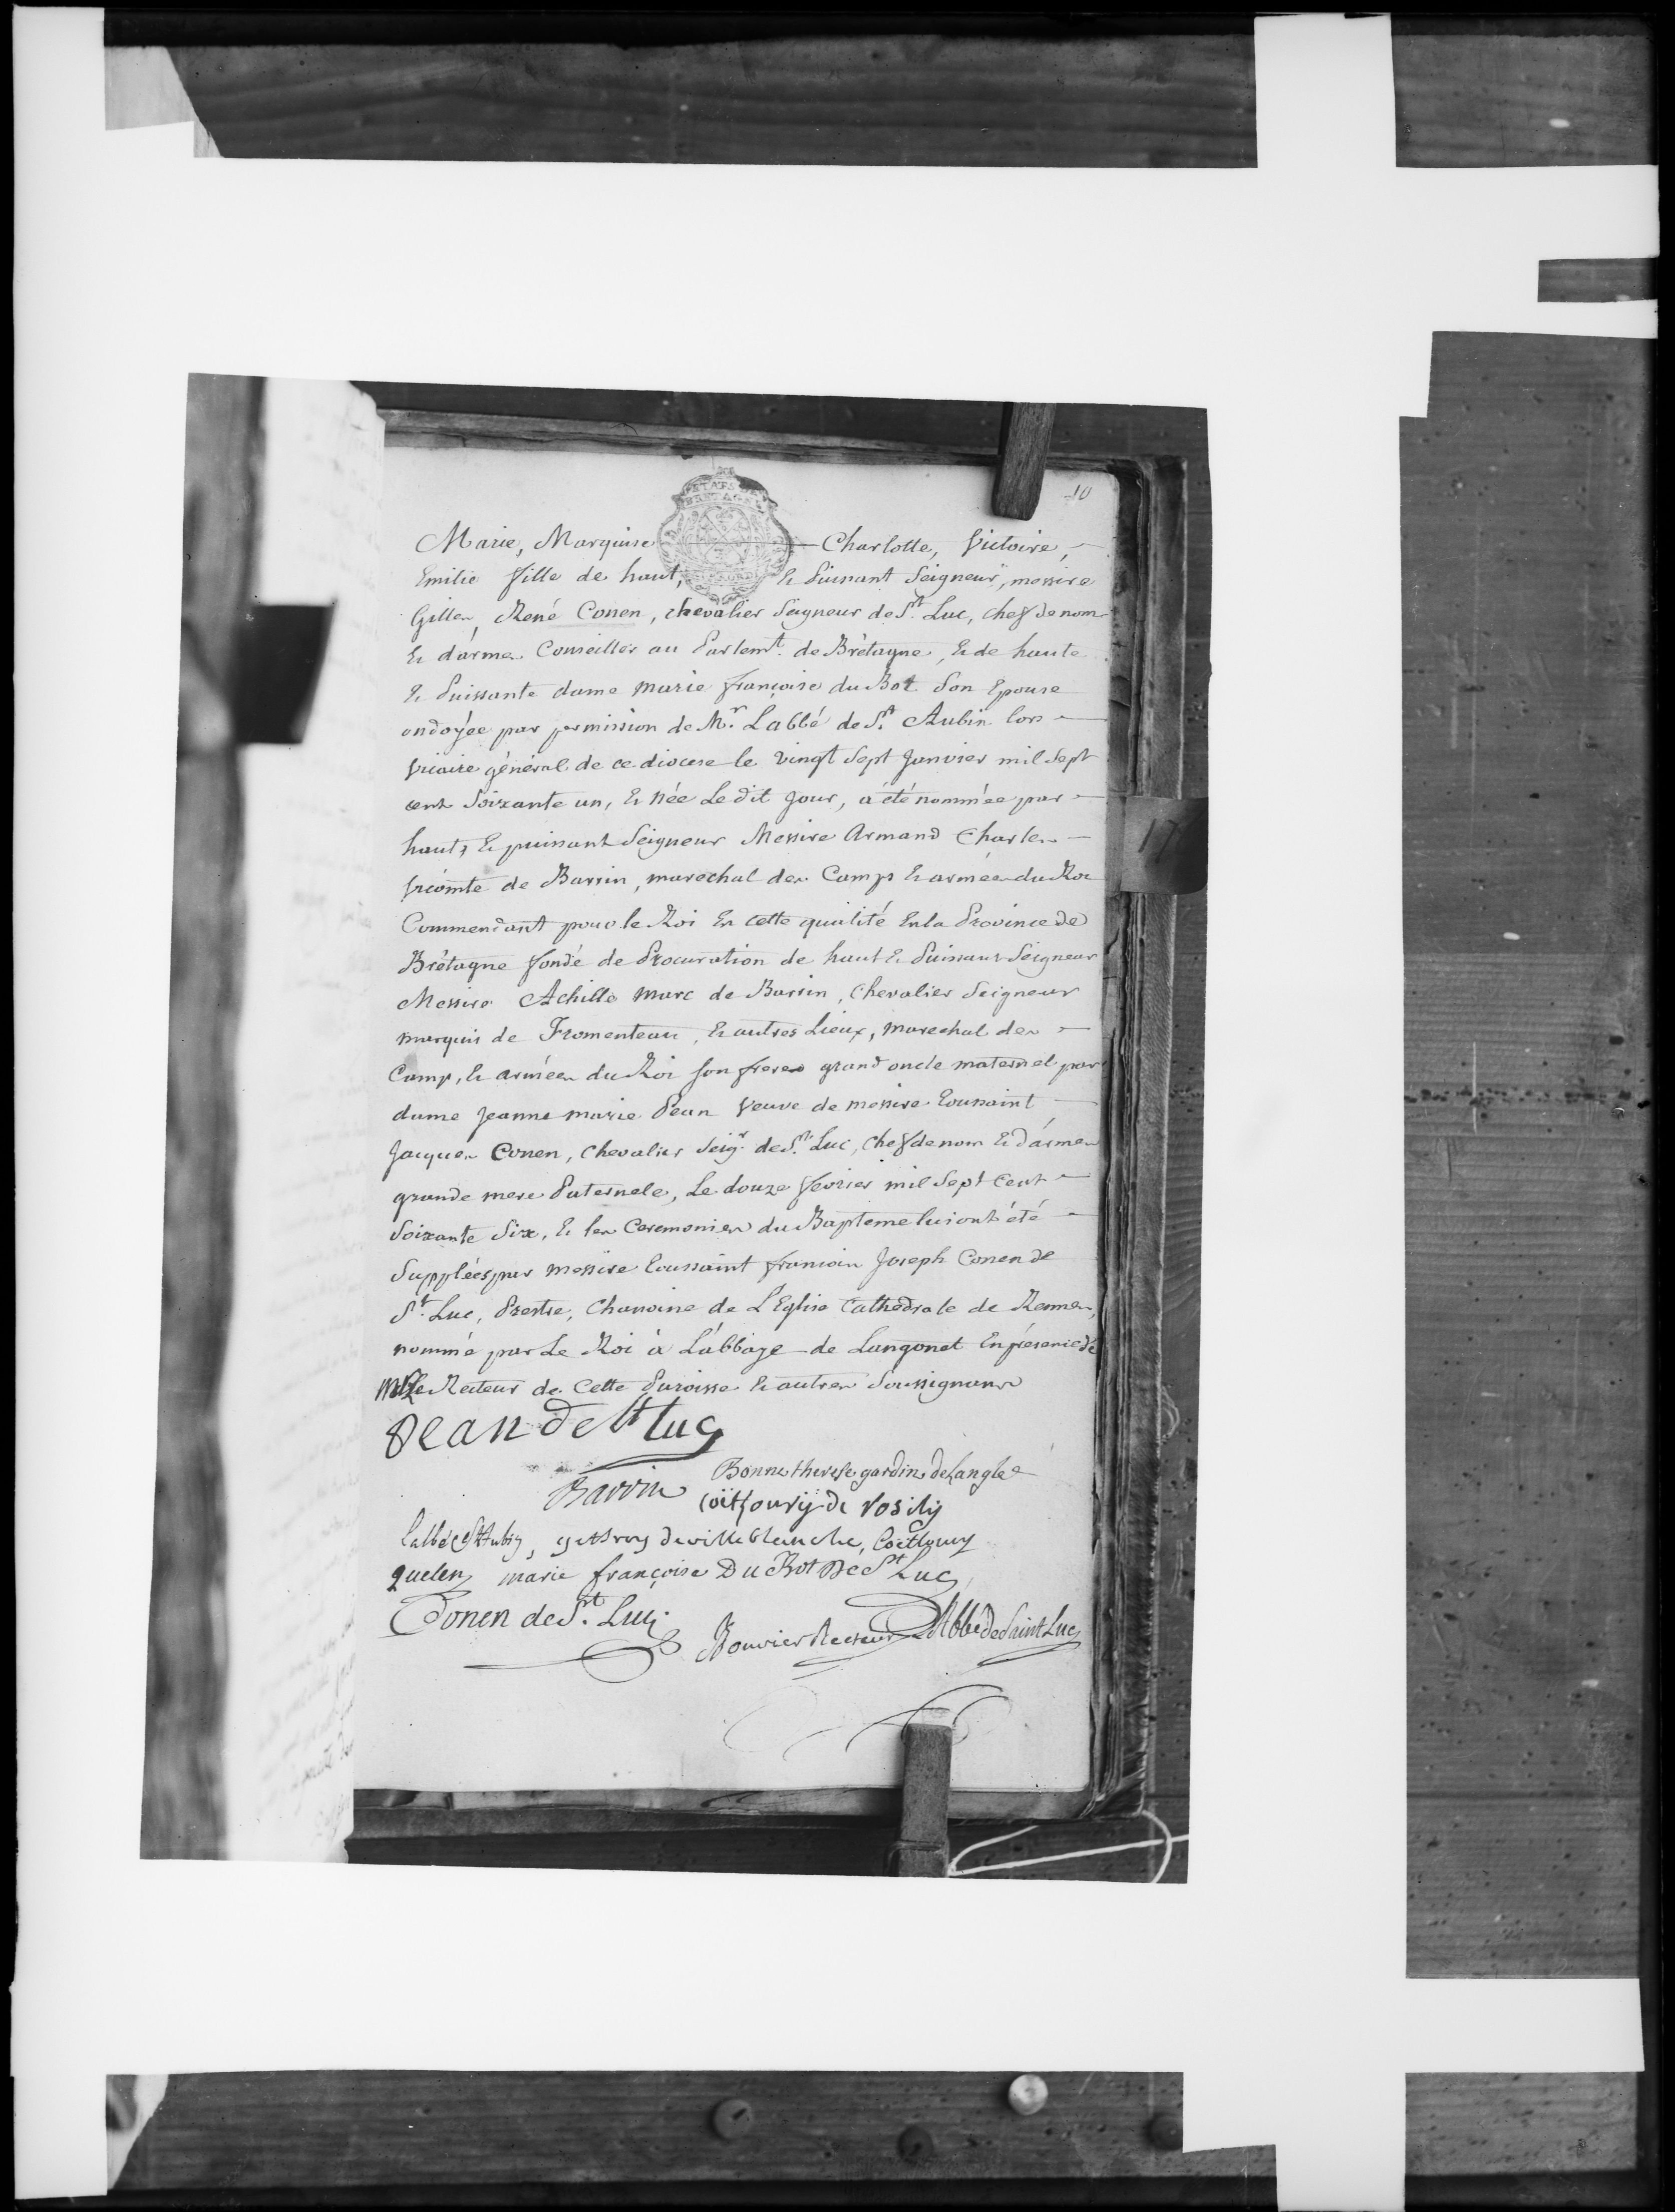 10
ETATS DE
BRETAGNE
Marie, Marquise Charlotte, Victoire,
Emilie fille de haut, & Puissant Seigneur, messire
Gilles, René Conen, chevalier Seigneur de St. Luc, chef de nom
& d'armes Conseiller au Parlemt. de Brètagne, & de haute
& Puissante dame marie françoise du Bot Son Epouse
ondoyée par permission de Mr. Labbé de St. Aubin lors
vicaire général de ce diocese le vingt Sept Janvier mil Sept
cent Soixante un, & née Le dit Jour, a été nommée par
haut, & puissant Seigneur Messire Armand Charles
vicomte de Barrin, marechal des Camps & armées du Roi
Commendant pour le Roi En cette qualité En la Province de
Brètagne fondé de Procuration de haut & Puissant Seigneur
Messire Achille Marc de Barrin, Chevalier Seigneur
marquis de Fromenteau, & autres Lieux, marechal des
Camp, & armées du Roi son frere grand oncle maternel par
dame Jeanne marie Pean veuve de messire Toussaint
Jacques Conen, Chevalier Seigr. de St. Luc, chef de nom & d'armes
grande mere Paternele, Le douze fevrier mil Sept Cent
Soixante Six, & les Ceremonies du Bapteme lui ont été
Suppléés par messire Toussaint françois Joseph Conen de
St. Luc, Prestre, Chanoine de L'Eglise Cathedrale de Rennes,
nommé par Le Roi à L'abbaye de Langonet En présence de
Mr Le Recteur de Cette Paroisse & autres Soussignans
Pean de St Luc
Bonne therese gardin de Langle
Barrin
Coëtloury de Rosily
l'abbé de St Aubin, geffroy de villeblanche, Coëtloury
quelen marie françoise Du Bot De St Luc
Conen de St. Luc
Bouvier Recteur L'Abbé de Saint Luc
17